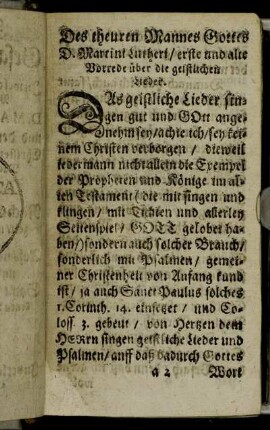 Des theuren Mannes Gottes
D. Martini Lutheri / erste und alte
Vorrede über die geistlichen
Lieder.
DAs geistliche Lieder sin-
gen gut und GOtt ange-
nehm sey / achte ich / sey kei-
nem Christen verborgen / dieweil
jedermann nicht allein die Exempel
der Propheten und Könige im al-
ten Testament / die mit singen und
klingen / mit Tichten und allerley
Seitenspiel / GOTT gelobet ha-
ben /) sondern auch solcher Brauch /
sonderlich mit Psalmen / gemei-
ner Christenheit von Anfang kund
ist / ja auch Sanct Paulus solches
1. Corinth. 14. einsetzet / und Co-
loss. 3. gebeut / von Hertzen dem
HErrn singen geistliche Lieder und
Psalmen / auff daß dadurch Gottes
a 2 Wort